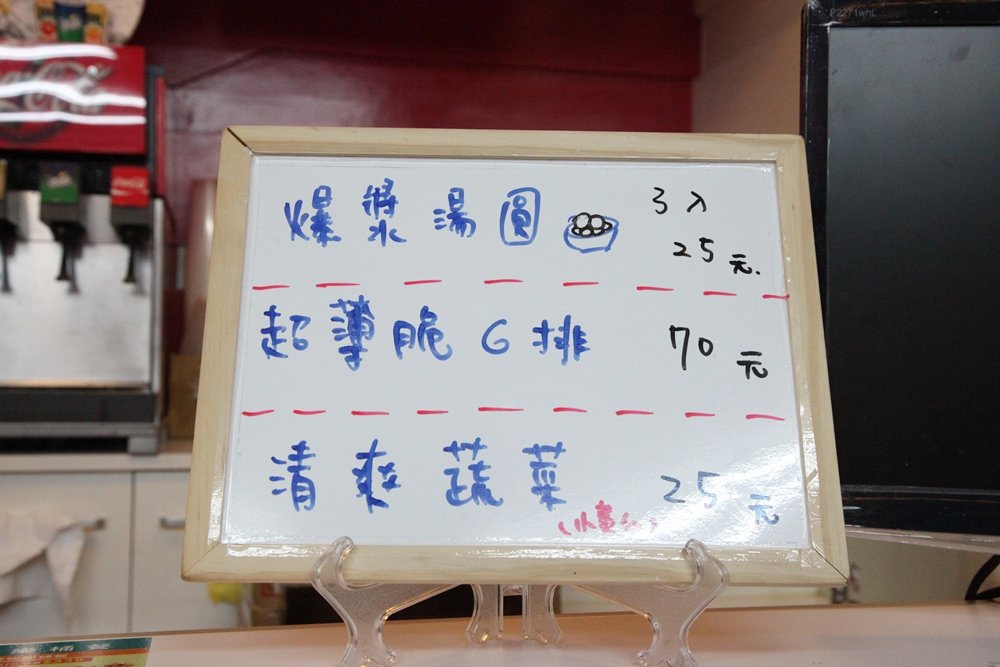 P2271wHL
Coca-Cola
爆漿湯圓 3入
25元.
超薄脆G排 70元
清爽蔬菜 25元